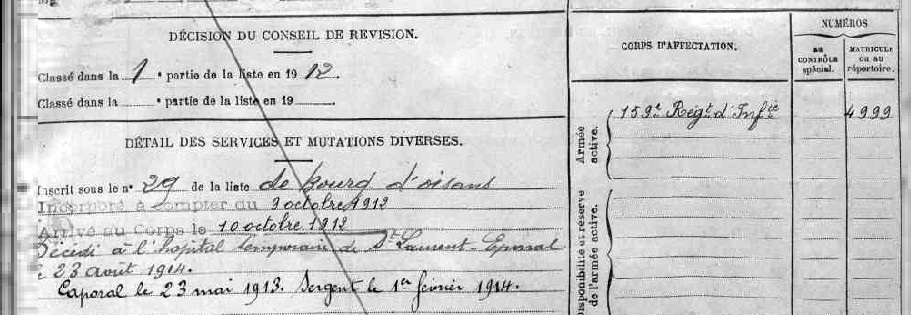 DÉCISION DU CONSEIL DE REVISION.
Classé dans la 1 e partie de la liste en 1912.
Classé dans la e partie de la liste en 19
DÉTAIL DES SERVICES ET MUTATIONS DIVERSES.
Inscrit sous le n° 29 de la liste de bourg d'oisans
Incorporé à compter du 9 octobre 1912
Arrivé au Corps le 10 octobre 1912
Décédé à l'hopital temporaire de St Laurent-Epinal
le 23 août 1914.
Caporal le 23 mai 1913. Sergent le 1er février 1914.
CORPS D'AFFECTATION.
NUMÉROS
au CONTRÔLE spécial.
MATRICULE ou au répertoire.
Armée active.
159e Régt d'Infie
4999
Disponibilité et réserve de l'armée active.